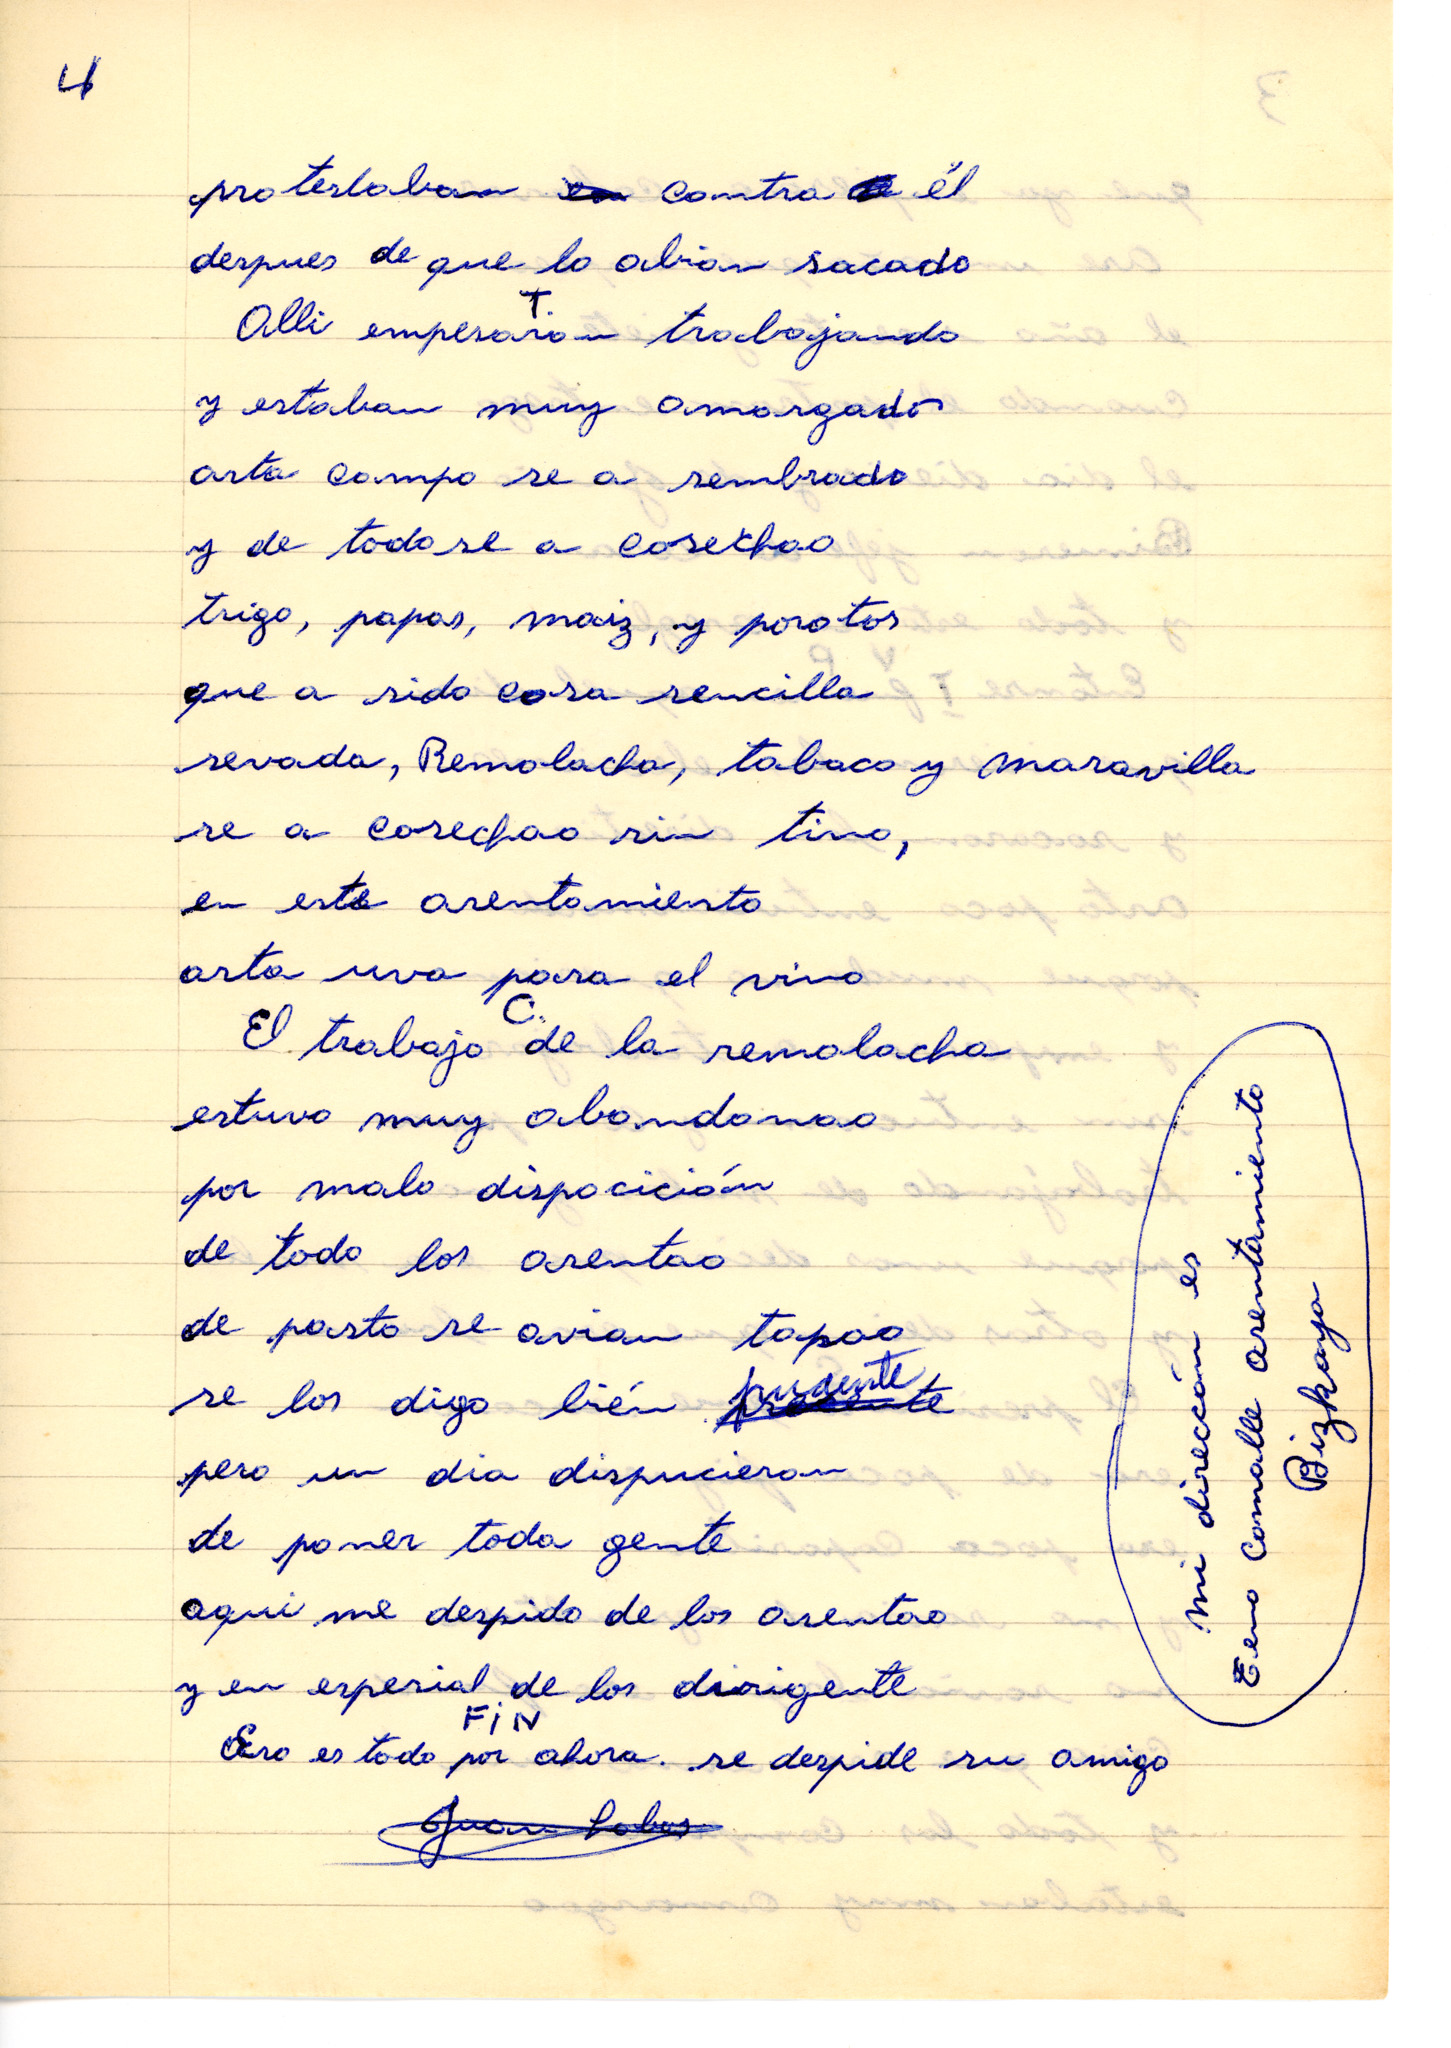 4
protestaban en contra de él
despues de que lo abian sacado
T
Alli empesarion trabajando
y estaban muy amargados
arta campo se a sembrado
y de todo se a cosechao
trigo, papas, maiz, y porotos
que a sido cosa sencilla
sevada, Remolacha, tabaco y maravilla
se a cosechao sin tino,
en este asentamiento
arta uva para el vino
C.
El trabajo de la remolacha
estuvo muy abandonao
por malo dispocición
de todo los asentao
de pasto se avian tapao
se los digo bién presente
pero un dia dispucieron
de poner toda gente
aqui me despido de los asentao
y en espesial de los dirigente
FiN
Eso es todo por ahora. se despide su amigo
Juan Lobos
mi dirección es
Teno Comalle asentamiento
Bizkaya